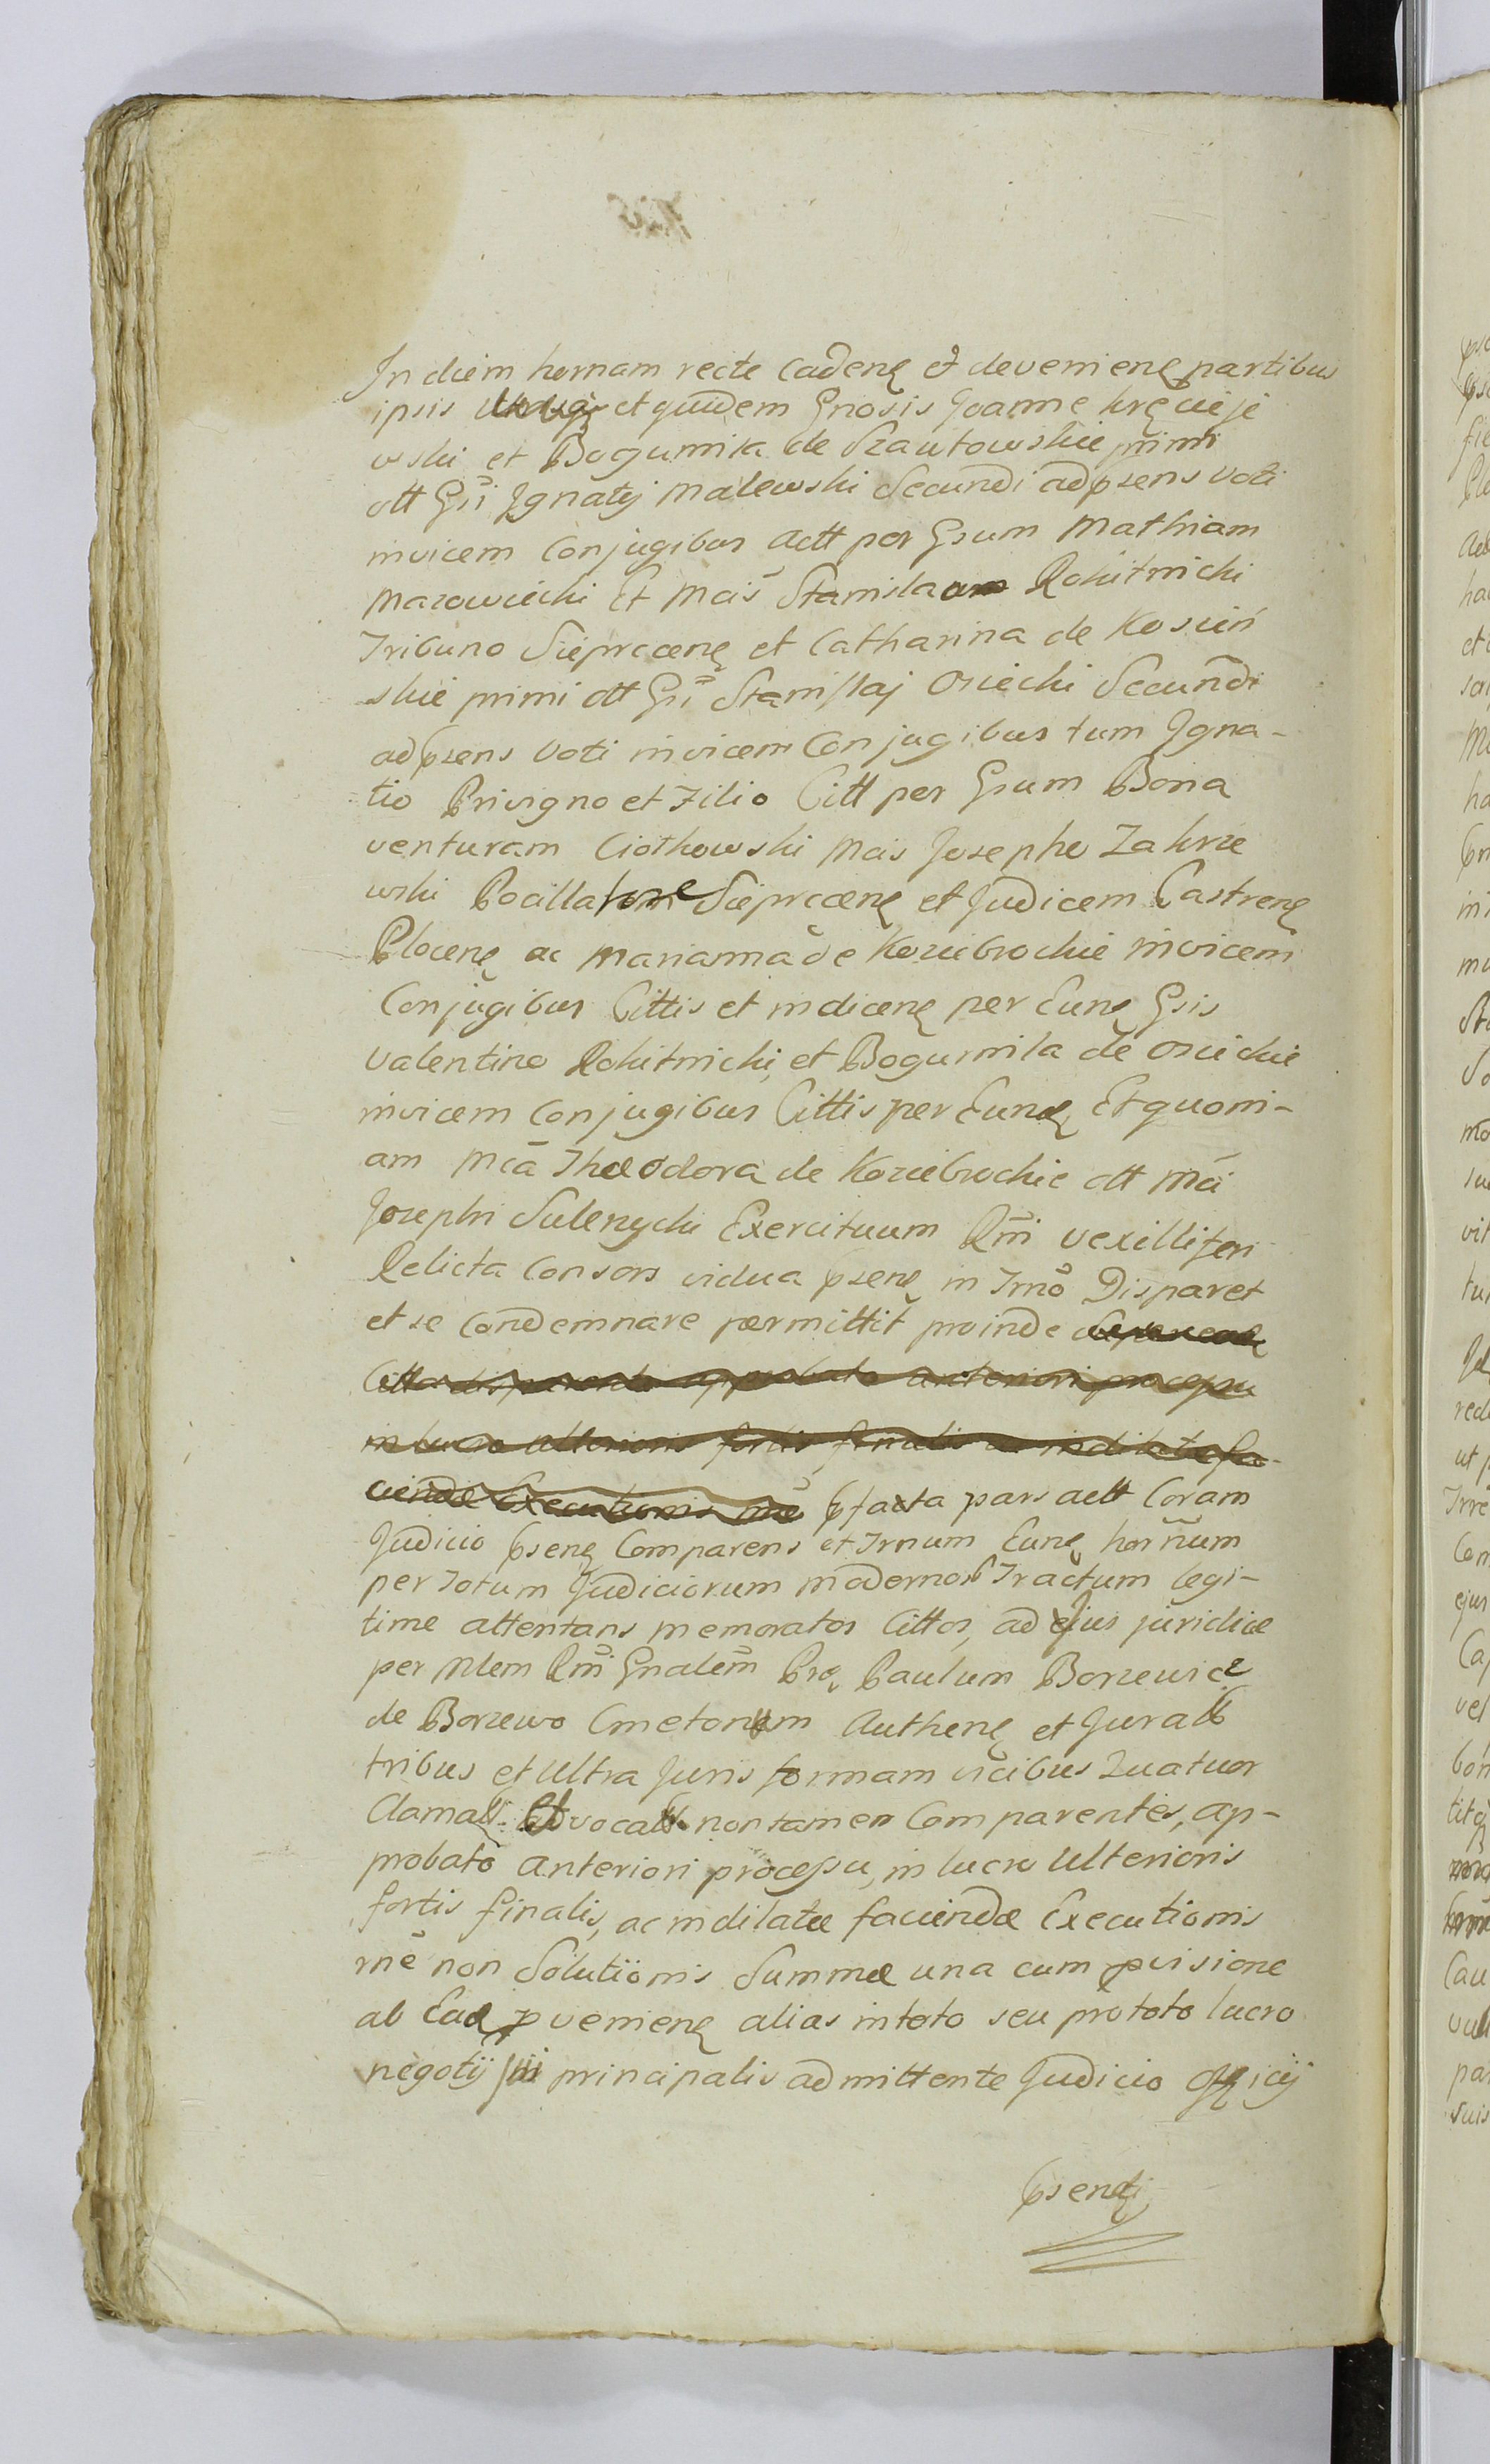 In diem hornam recte Cadenę et devenienę partibus
ipsis et quidem Gnosis Joanne kręcieje
wski et Bogumiła de Szautowskie primi
ott Gsi Ignatij Malewski Secundi adpsens voti
invicem Conjugibus Actt per Gsum Mathiam
Mazowiecki Et Mcis Stanislao Rokitnicki
Tribuno Sieprcenę et Catharina de Kosień
skie primi ott Gsi Stanislaj Osiecki Secundi
adpsens voti invicem Conjugibus tum Igna-
tio Privigno et Filio Citt per Gsum Bona
venturam Ciołkowski Mcis Josepho Zakrze
wski Pocillatore Sieprcenę et Judicem Castrenę
Plocenę ac Marianna de Koziebrockie invicem
Conjugibus Cittis et indicenę per Eunę Gsis
Valentino Rokitnicki, et Bogumila de Osieckie
invicem Conjugibus Cittis per Eundę Et quoni-
am Mca Theodora de Koziebrockie ott Mci
Josephi Sulenycki Exercituum Rni vexilliferi
Relicta Consors vidua psenę in Trno Disparet
et se Condemnare permittit proinde
Citta disparente approbato anteriori processu
in lucro ulterioris fortis finalis ac indilatæ fa-
ciendæ Executionis rne pfacta pars actt Coram
Judicio psenę Comparens et Trnum Eunę hornum
per Totum Judiciorum modernor Tractum legi-
time attentans memoratos Cittos, ad ejus juridice
per Mlem Rni Gnalem Prę Paulum Borzewicz
de Borzewo Cmetonem Authenę et Juratt
tribus et Ultra Juris formam vicibus Quatuor
Clamatt. Advocatt. non tamen Comparentes, ap-
probato anteriori processu, in lucro Ulterioris
fortis finalis, ac indilatæ faciendæ Executionis
rne non Solutionis Summæ una cum pvisione
ab Eadę pvenienę alias in toto seu pro toto lucro
negotij sui principalis admittente Judicio Officij
psenti